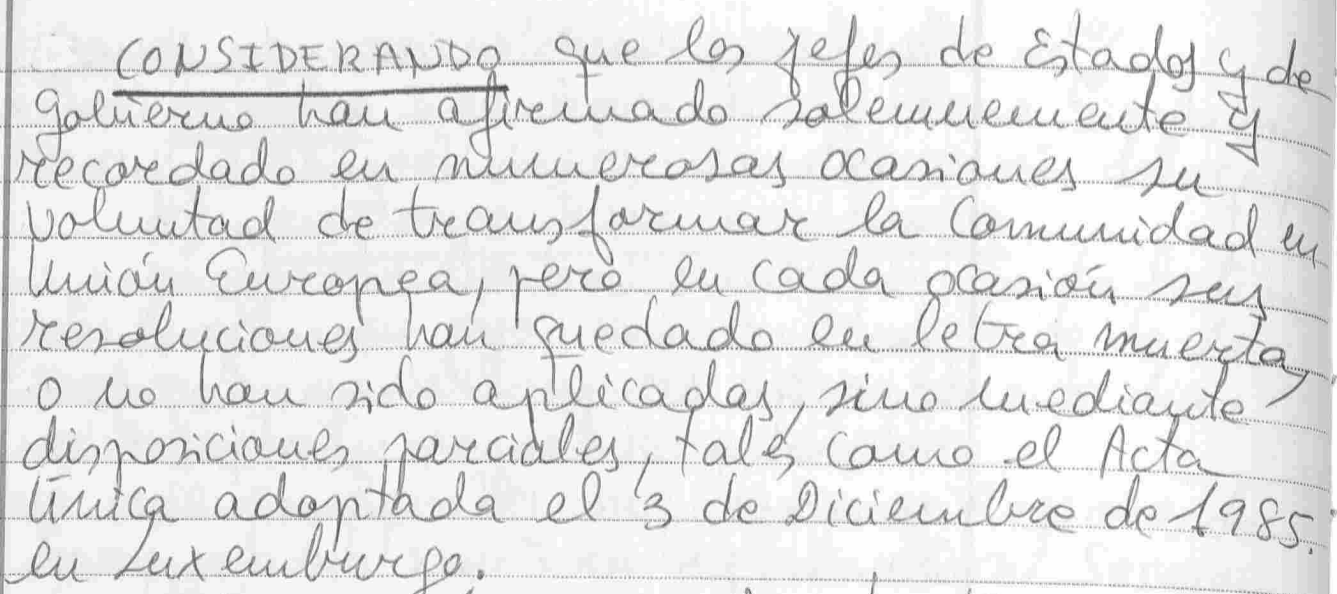 CONSIDERANDO que los jefes de Estados y de
gobierno han afirmado solemnemente y
recordado en numerosas ocasiones su
voluntad de transformar la Comunidad en
Unión Europea, pero en cada ocasión sus
resoluciones han quedado en letra muerta,
o no han sido aplicadas, sino mediante
disposiciones parciales, tales como el Acta
Única adoptada el 3 de Diciembre de 1985.
en Luxemburgo.